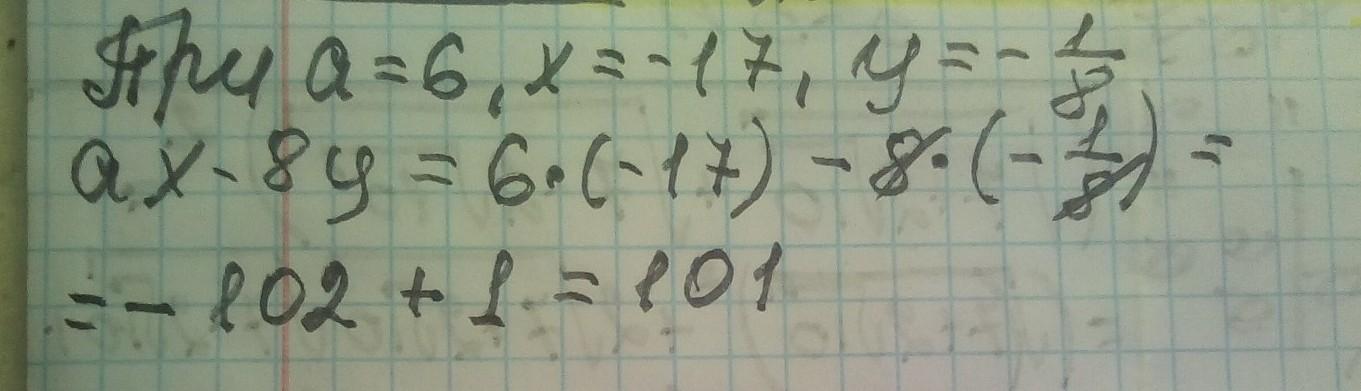 При a = 6, x = -17, y = -1/8
ax - 8y = 6·(-17) - 8·(-1/8) =
= - 102 + 1 = 101